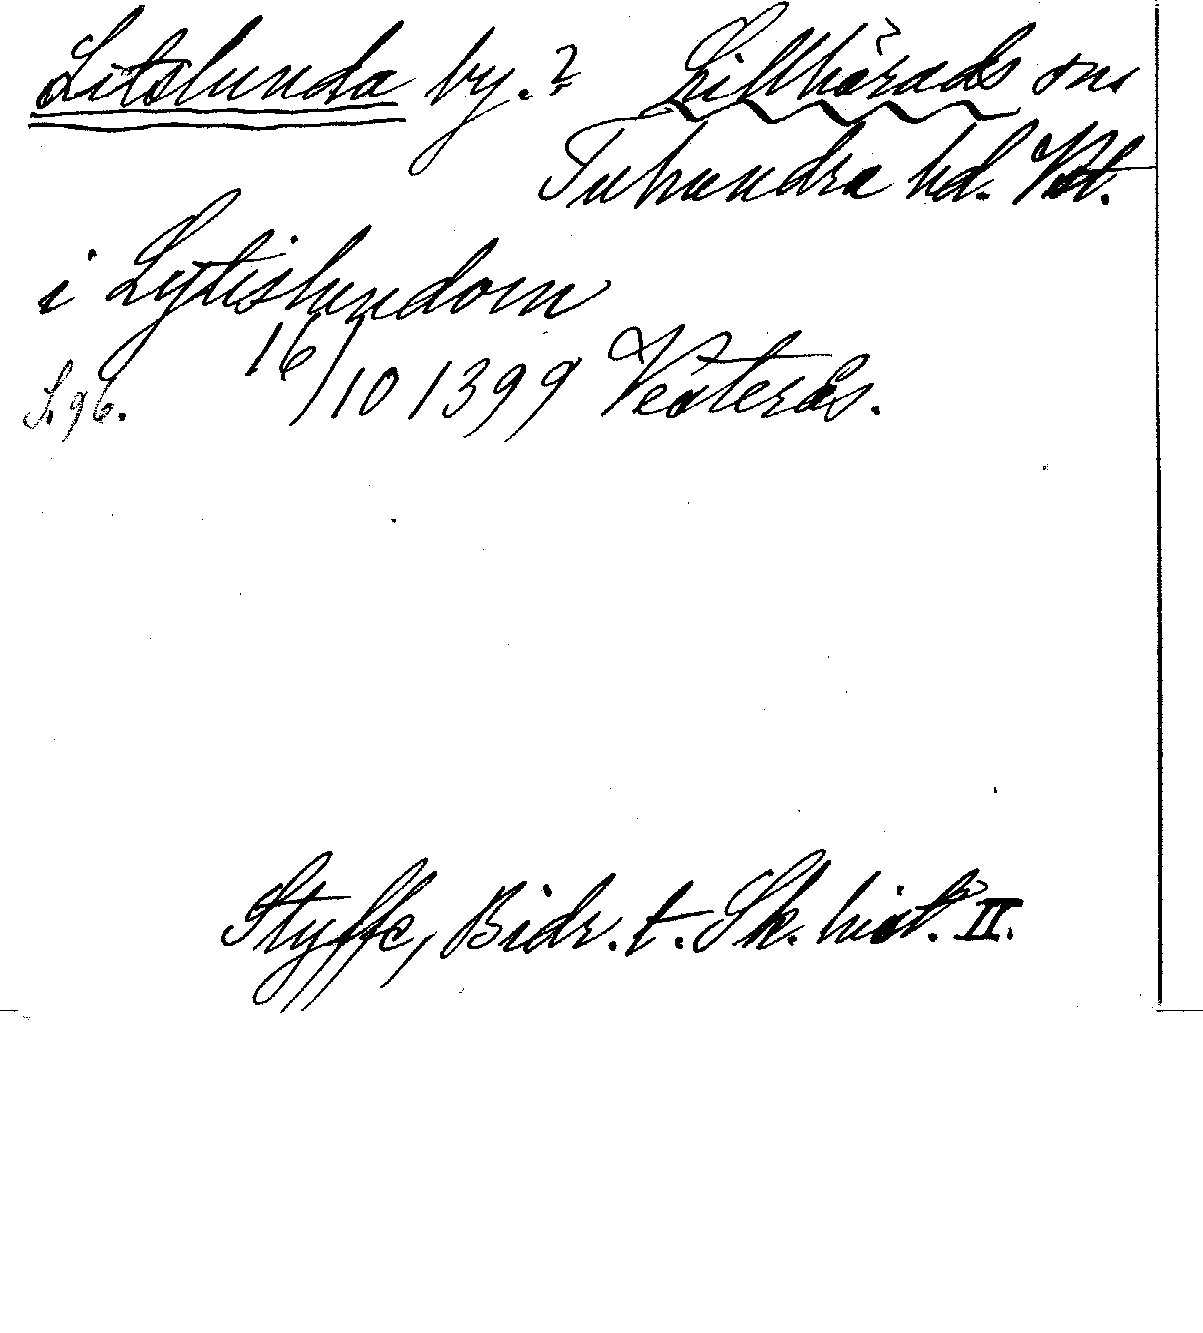 Litslunda by.? Lillhärads sn.
Tuhundra hd. Vstl.
i Lytislundom
S. 96. 16/10 1399 Västerås.
Styffe, Bidr. t. Sk. hist. II.